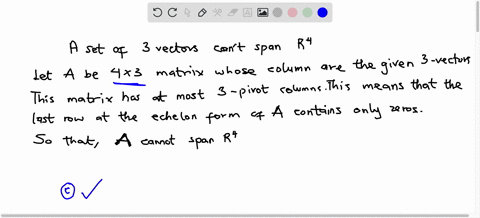 A set of 3 vectors can't span R⁴
Let A be 4×3 matrix whose column are the given 3-vectors
This matrix has at most 3-pivot columns. This means that the
last row at the echelon form of A contains only zeros.
So that, A cannot span R⁴
ⓒ ✓